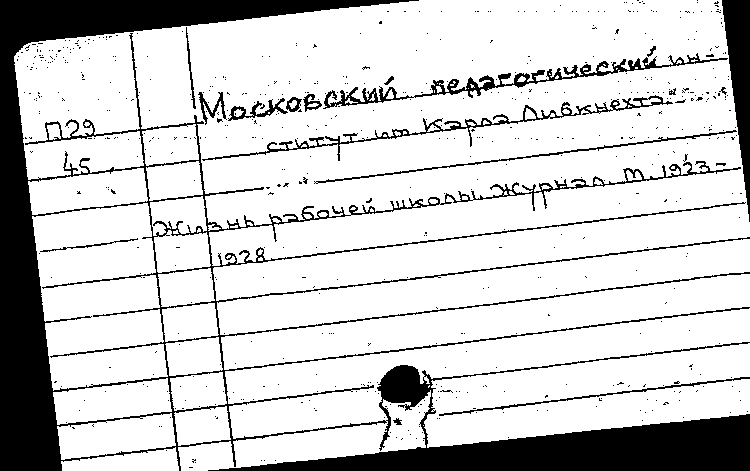 П29
45
Московский педагогический ин-
ститут им Карла Либкнехта
Жизнь рабочей школы. Журнал. М. 1923-
1928